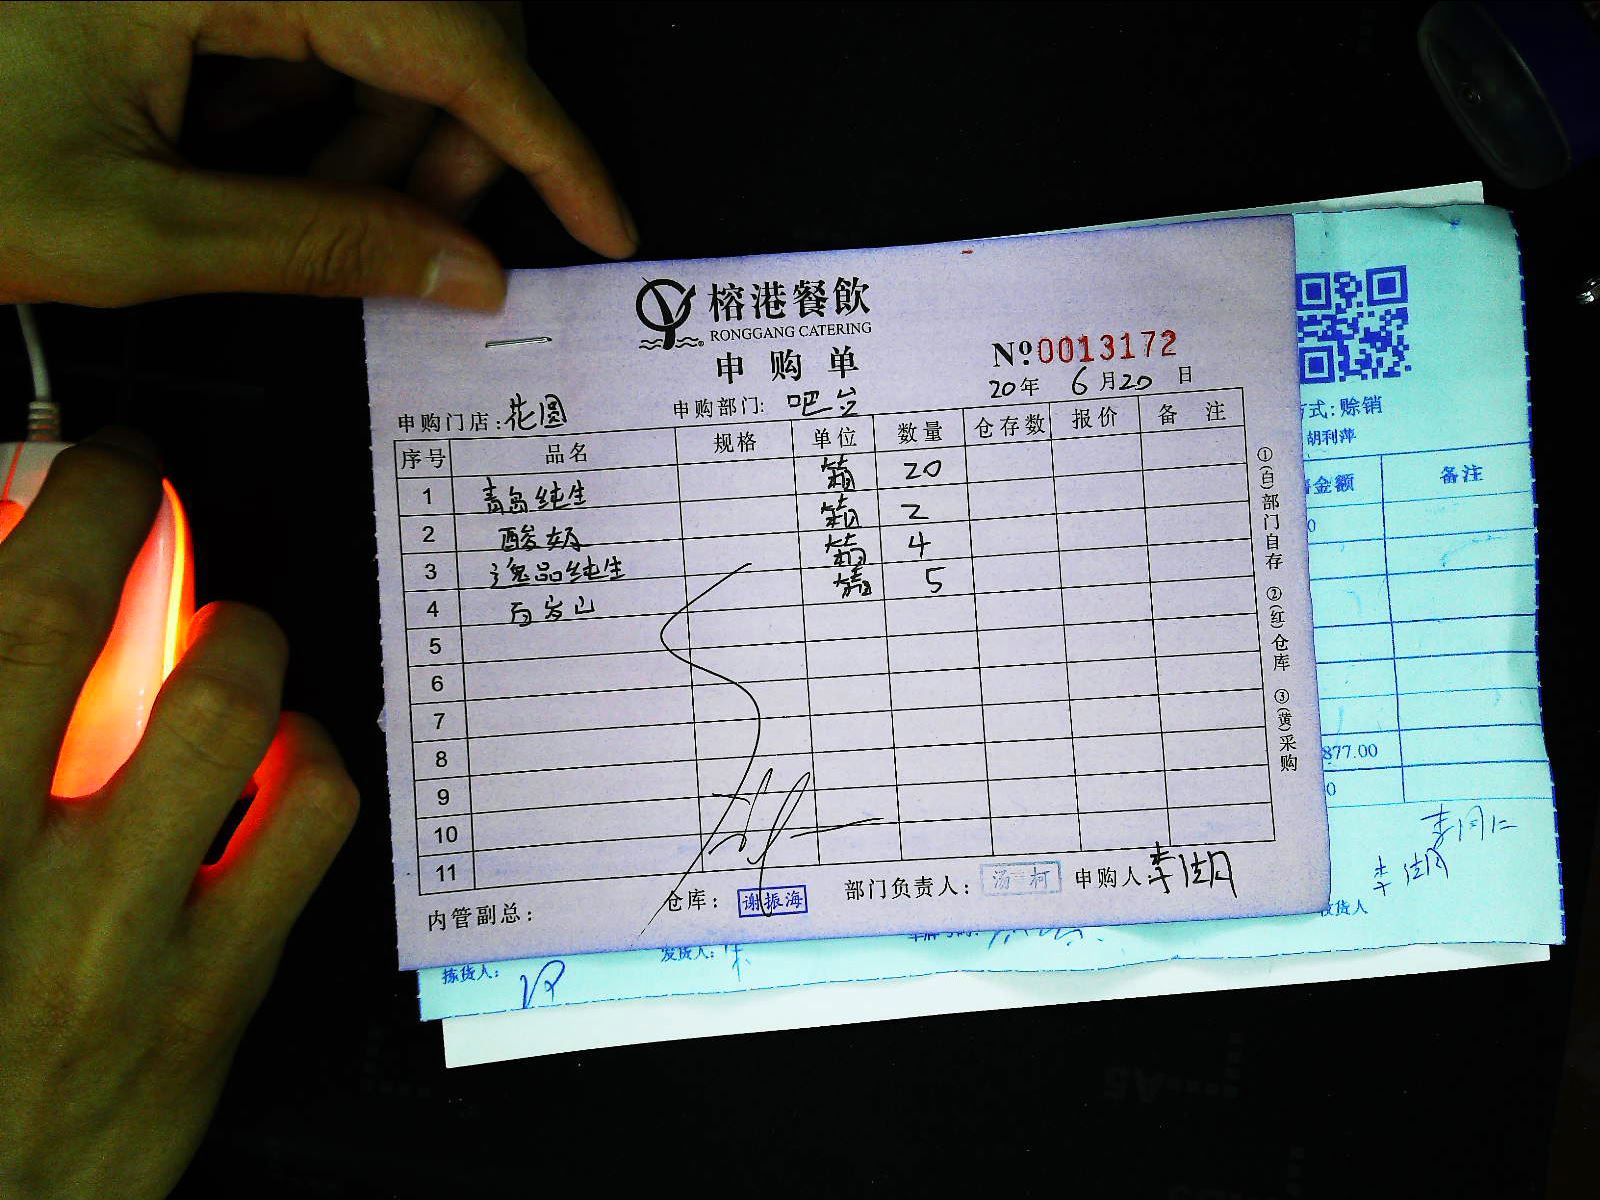 榕港餐飲
RONGGANG CATERING
申购单
Nº 0013172
20年 6月20日
申购门店:花圆 申购部门:吧台
序号 品名 规格 单位 数量 仓存数 报价 备注
1 青岛纯生 箱 20
2 酸奶 箱 2
3 逸品纯生 箱 4
4 百岁山 箱 5
5
6
7
8
9
10
11
内管副总: 仓库: 谢振海 部门负责人: 汤柯 申购人:
①(白)部门自存 ②(红)仓库 ③(黄)采购
方式:赊销
胡利萍
金额 备注
0
877.00
0
收货人
拣货人:
发货人: